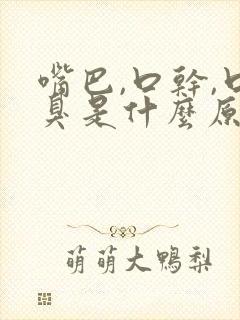 嘴巴,口幹,口
臭是什麼原
萌萌大鴨梨